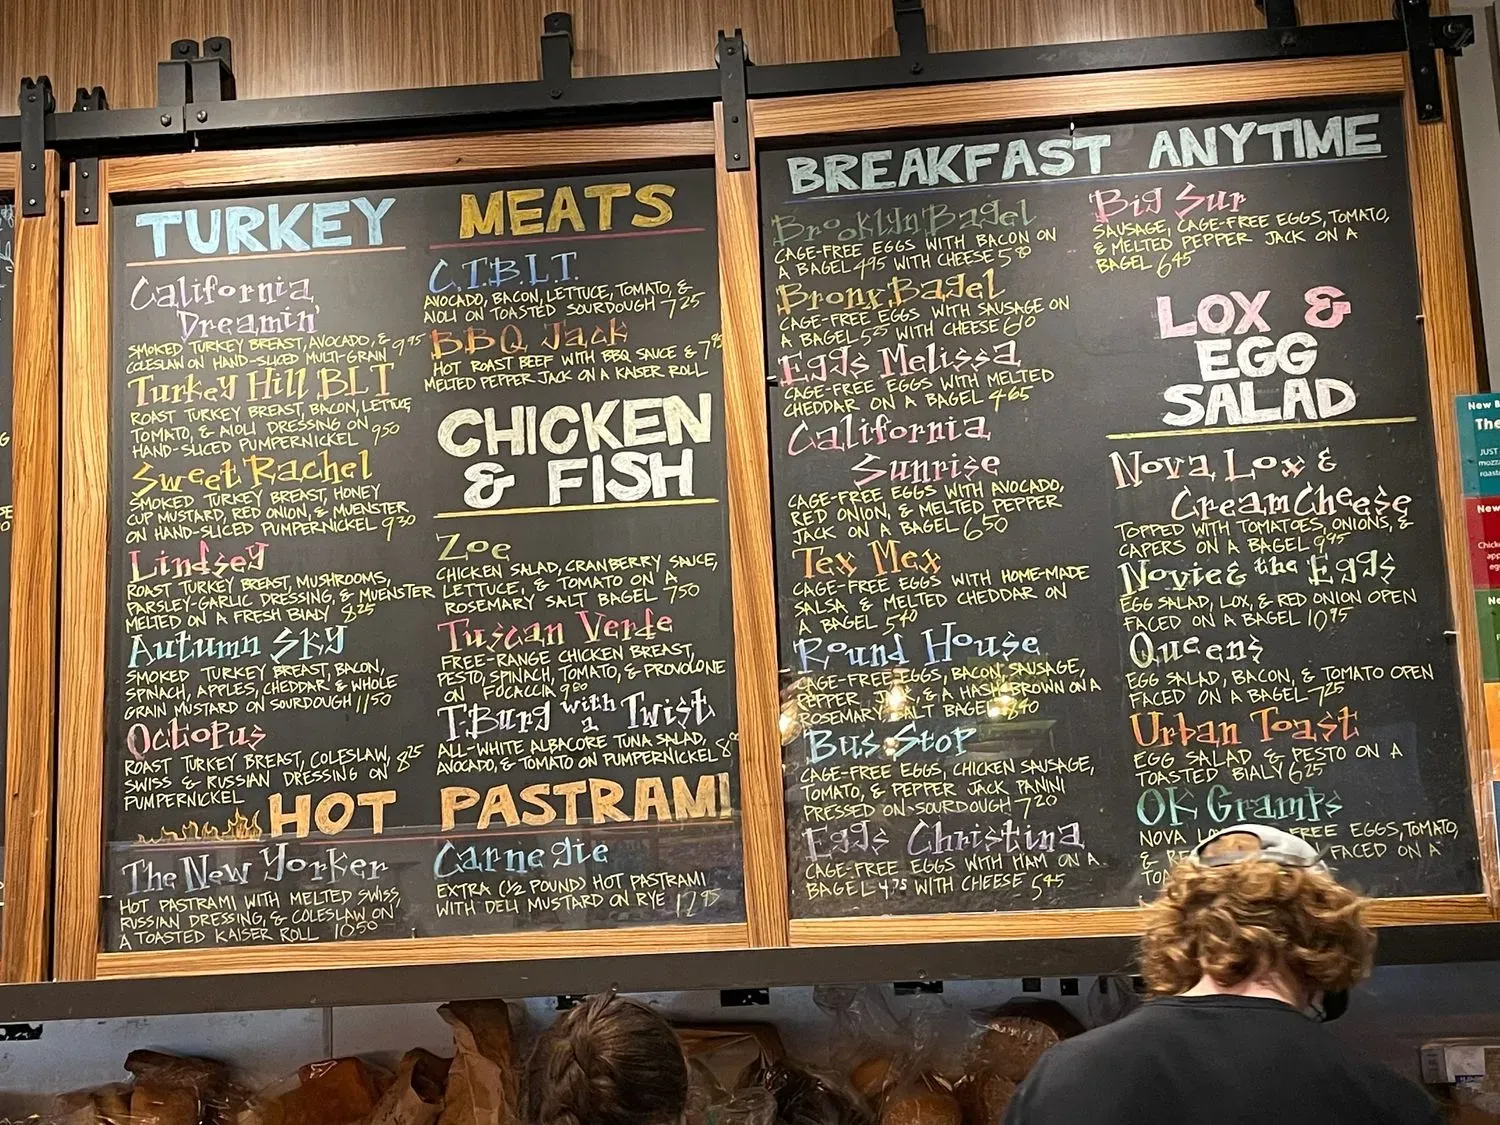 TURKEY
California
Dreamin'
SMOKED TURKEY BREAST, AVOCADO, &
COLESLAW ON HAND-SLICED MULTI-GRAIN 9 95
Turkey Hill BLT
ROAST TURKEY BREAST, BACON, LETTUCE
TOMATO, & AIOLI DRESSING ON
HAND-SLICED PUMPERNICKEL 9 50
Sweet Rachel
SMOKED TURKEY BREAST, HONEY
CUP MUSTARD, RED ONION, & MUENSTER
ON HAND-SLICED PUMPERNICKEL 9 30
Lindsey
ROAST TURKEY BREAST, MUSHROOMS,
PARSLEY-GARLIC DRESSING, & MUENSTER
MELTED ON A FRESH BIALY 8 25
Autumn Sky
SMOKED TURKEY BREAST, BACON,
SPINACH, APPLES, CHEDDAR & WHOLE
GRAIN MUSTARD ON SOURDOUGH 11 50
Octopus
ROAST TURKEY BREAST, COLESLAW,
SWISS & RUSSIAN DRESSING ON 8 25
PUMPERNICKEL
MEATS
C.T.B.L.T.
AVOCADO, BACON, LETTUCE, TOMATO, &
AIOLI ON TOASTED SOURDOUGH 7 25
BBQ Jack
HOT ROAST BEEF WITH BBQ SAUCE &
MELTED PEPPER JACK ON A KAISER ROLL
CHICKEN
& FISH
Zoe
CHICKEN SALAD, CRANBERRY SAUCE,
LETTUCE, & TOMATO ON A
ROSEMARY SALT BAGEL 7 50
Tuscan Verde
FREE-RANGE CHICKEN BREAST,
PESTO, SPINACH, TOMATO, & PROVOLONE
ON FOCACCIA 9 80
T.Burg with a Twist
ALL-WHITE ALBACORE TUNA SALAD,
AVOCADO, & TOMATO ON PUMPERNICKEL
HOT PASTRAMI
The New Yorker
HOT PASTRAMI WITH MELTED SWISS,
RUSSIAN DRESSING, & COLESLAW ON
A TOASTED KAISER ROLL 10 50
Carnegie
EXTRA (½ POUND) HOT PASTRAMI
WITH DELI MUSTARD ON RYE 12 95
BREAKFAST ANYTIME
Brooklyn Bagel
CAGE-FREE EGGS WITH BACON ON
A BAGEL 4 95 WITH CHEESE 5 80
Bronx Bagel
CAGE-FREE EGGS WITH SAUSAGE ON
A BAGEL 5 55 WITH CHEESE 6 10
Eggs Melissa
CAGE-FREE EGGS WITH MELTED
CHEDDAR ON A BAGEL 4 65
California
Sunrise
CAGE-FREE EGGS WITH AVOCADO,
RED ONION, & MELTED PEPPER
JACK ON A BAGEL 6 50
Tex Mex
CAGE-FREE EGGS WITH HOME-MADE
SALSA & MELTED CHEDDAR ON
A BAGEL 5 40
Round House
CAGE-FREE EGGS, BACON, SAUSAGE,
PEPPER JACK, & A HASH BROWN ON A
ROSEMARY SALT BAGEL 8 40
Bus Stop
CAGE-FREE EGGS, CHICKEN SAUSAGE,
TOMATO, & PEPPER JACK PANINI
PRESSED ON SOURDOUGH 7 20
Eggs Christina
CAGE-FREE EGGS WITH HAM ON A
BAGEL 4 75 WITH CHEESE 5 45
Big Sur
SAUSAGE, CAGE-FREE EGGS, TOMATO,
& MELTED PEPPER JACK ON A
BAGEL 6 45
LOX &
EGG
SALAD
Nova Lox &
Cream Cheese
TOPPED WITH TOMATOES, ONIONS, &
CAPERS ON A BAGEL 9 95
Novie & the Eggs
EGG SALAD, LOX, & RED ONION OPEN
FACED ON A BAGEL 10 95
Queens
EGG SALAD, BACON, & TOMATO OPEN
FACED ON A BAGEL 7 25
Urban Toast
EGG SALAD & PESTO ON A
TOASTED BIALY 6 25
OK Gramps
NOVA FREE EGGS, TOMATO,
& FACED ON A
New
The
JUST
New